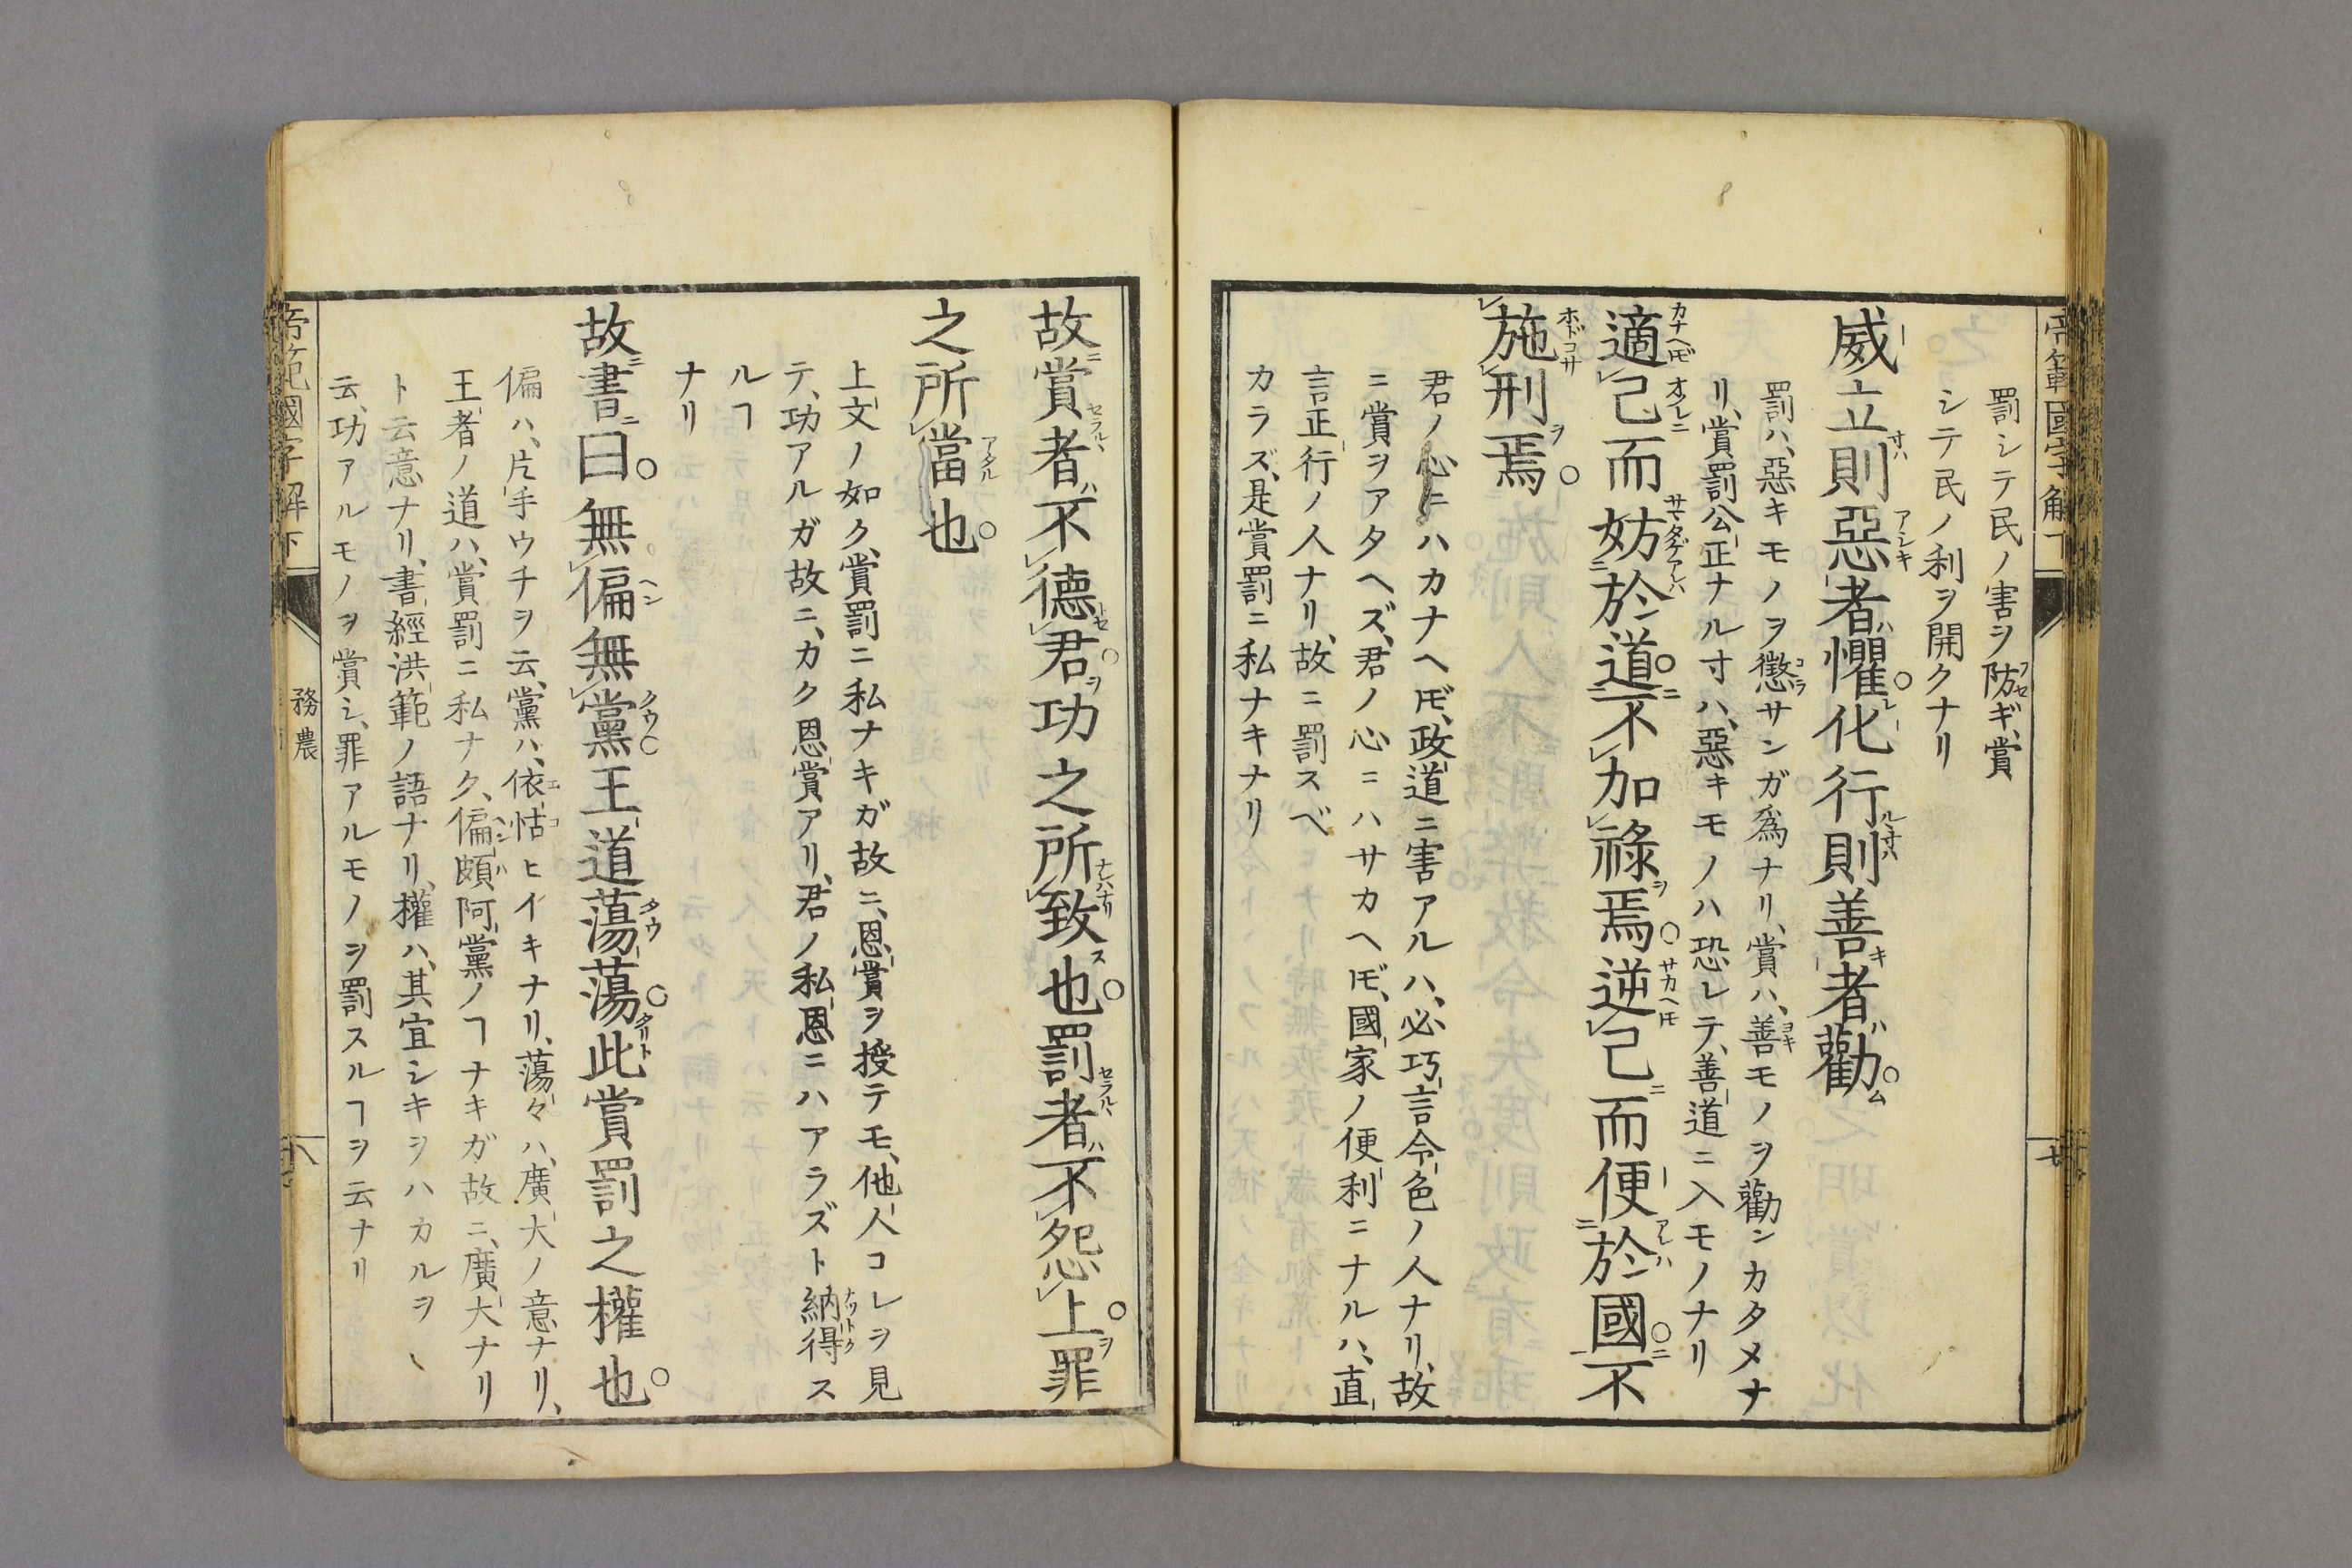 帝範國字解下
七
罰シテ民ノ害ヲ防ギ、賞
シテ民ノ利ヲ開クナリ
威立則惡者懼。化行則善者勸。
罰ハ、惡キモノヲ懲サンガ爲ナリ、賞ハ、善モノヲ勸ンカタメナ
リ、賞罰公正ナル寸ハ、惡キモノハ恐レテ、善道ニ入モノナリ
適己而妨於道。不加祿焉。逆己而便於國。不
施刑焉。
君ノ心ニハカナヘ𪜈、政道ニ害アルハ、必巧言令色ノ人ナリ、故
ニ賞ヲアタヘズ、君ノ心ニハサカヘ𪜈、國家ノ便利ニナルハ、直
言正行ノ人ナリ、故ニ罰スベ
カラズ、是賞罰ニ私ナキナリ
故賞者不德君功之所致也。罰者不怨上。罪
之所當也。
上文ノ如ク、賞罰ニ私ナキガ故ニ、恩賞ヲ授テモ、他人コレヲ見
テ、功アルガ故ニ、カク恩賞アリ、君ノ私恩ニハアラズト納得ス
ルヿ
ナリ
故書曰。無偏無黨。王道蕩蕩。此賞罰之權也。
偏ハ、片手ウチヲ云、黨ハ、依怙ヒイキナリ、蕩々ハ、廣大ノ意ナリ、
王者ノ道ハ、賞罰ニ私ナク、偏頗阿黨ノヿナキガ故ニ、廣大ナリ
ト云意ナリ、書經洪範ノ語ナリ、權ハ、其宜シキヲハカルヲ
云、功アルモノヲ賞シ、罪アルモノヲ罰スルヿヲ云ナリ
帝範國字解下
務農
八